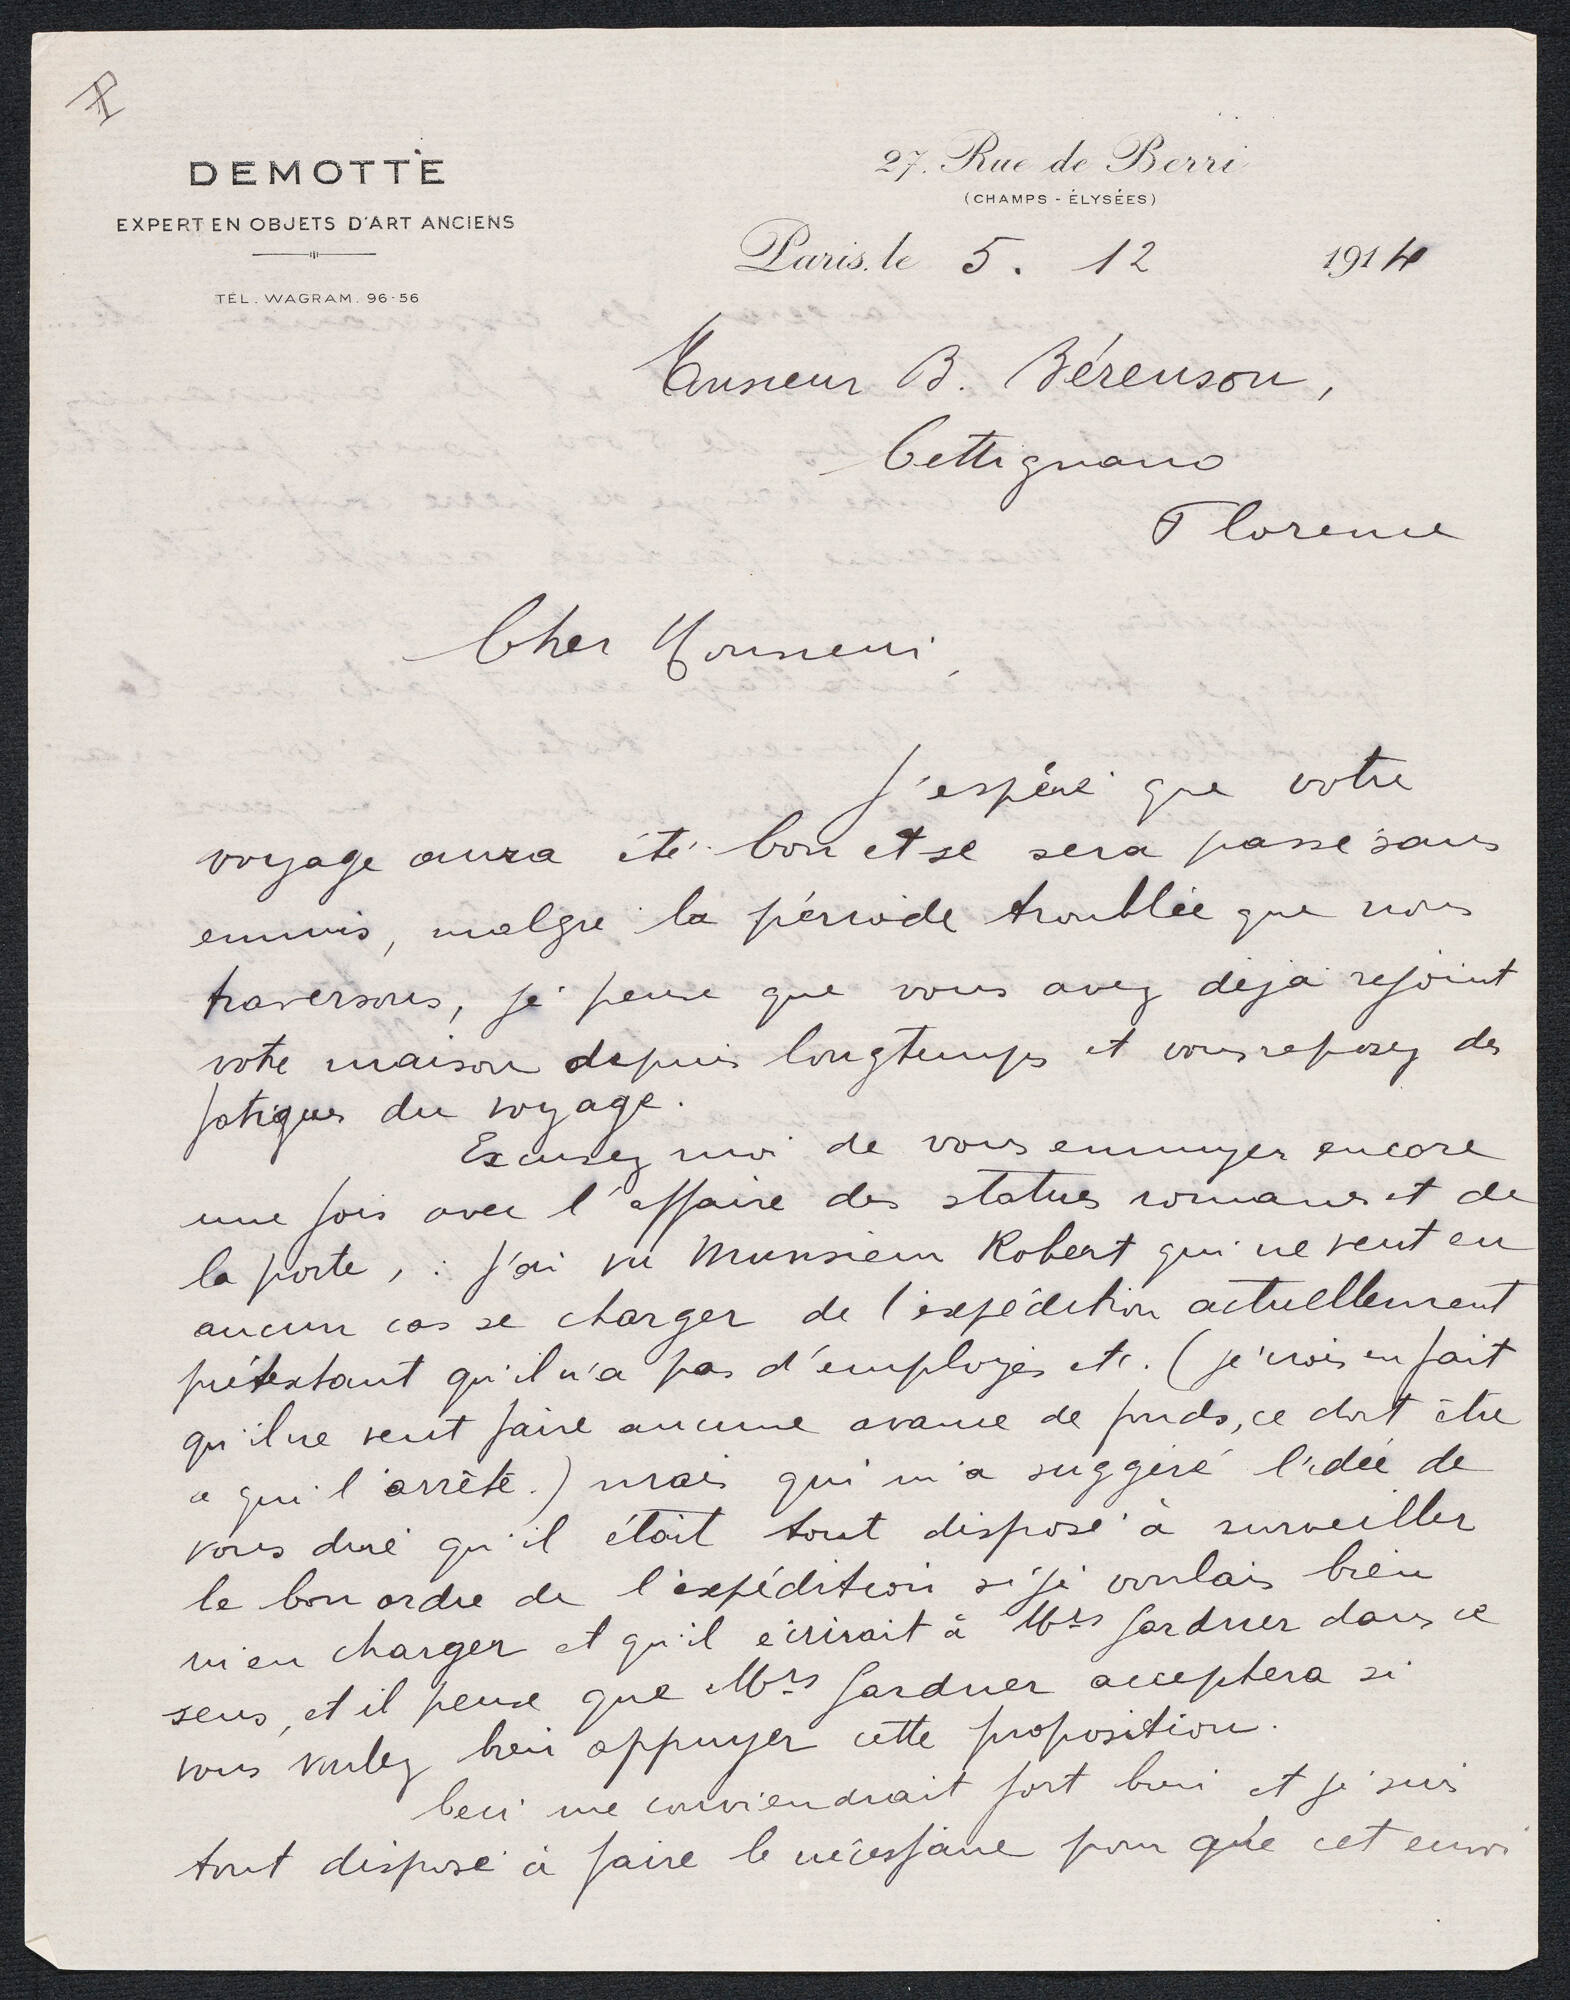 DEMOTTE
EXPERT EN OBJETS D'ART ANCIENS
TÉL. WAGRAM. 96-56
27. Rue de Berri
(CHAMPS-ÉLYSÉES)
Paris, le 5. 12 1914
Monsieur B. Bérenson,
Cettignano
Florence
Cher Monsieur,
J'espère que votre
voyage aura été bon et se sera passé sans
ennuis, malgré la période troublée que nous
traversons, je pense que vous avez déjà rejoint
votre maison depuis longtemps et vous reposez des
fatigues du voyage.
Excusez moi de vous ennuyer encore
une fois avec l'affaire des statues romanes et de
la porte, : j'ai vu Monsieur Robert qui ne veut en
aucun cas se charger de l'expédition actuellement
prétextant qu'il n'a pas d'employés etc. (je crois en fait
qu'il ne veut faire aucune avance de fonds, ce doit être
ce qui l'arrête.) mais qui m'a suggéré l'idée de
vous dire qu'il était tout disposé à surveiller
le bon ordre de l'expédition si je voulais bien
m'en charger et qu'il écrirait à Mrs Gardner dans ce
sens, et il pense que Mrs Gardner acceptera si
vous voulez bien appuyer cette proposition.
Ceci me conviendrait fort bien et je suis
tout disposé à faire le nécessaire pour que cet envoi